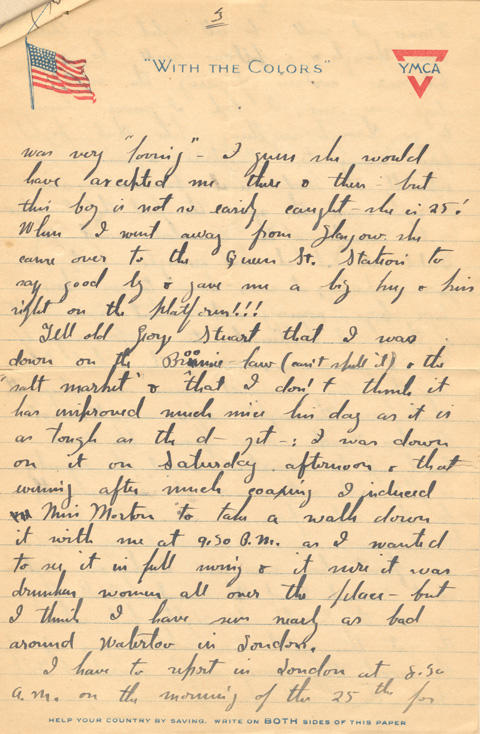 3
"WITH THE COLORS"
YMCA
was very "loving" - I guess she would
have accepted me there & then - but
this boy is not so easily caught - she is 25!
When I went away from Glasgow she
came over to the Queen St. Station to
say good by & gave me a big hug & kiss
right on the platform!!!
Tell old George Stuart that I was
down on the law (can't spell it) & the
"salt market" & that I don't think it
has improved much since his day as it is
as tough as the d- I was down
on it on Saturday afternoon & that
evening after much coaxing I induced
Miss Morton to take a walk down
it with me at 9.30 P.M. as I wanted
to see it in full swing & it sure it was
drunken women all over the place - but
I think I have seen nearly as bad
around Waterloo in London.
I have to report in London at 8.30
a.m. on the morning of the 25th for
HELP YOUR COUNTRY BY SAVING. WRITE ON BOTH SIDES OF THIS PAPER